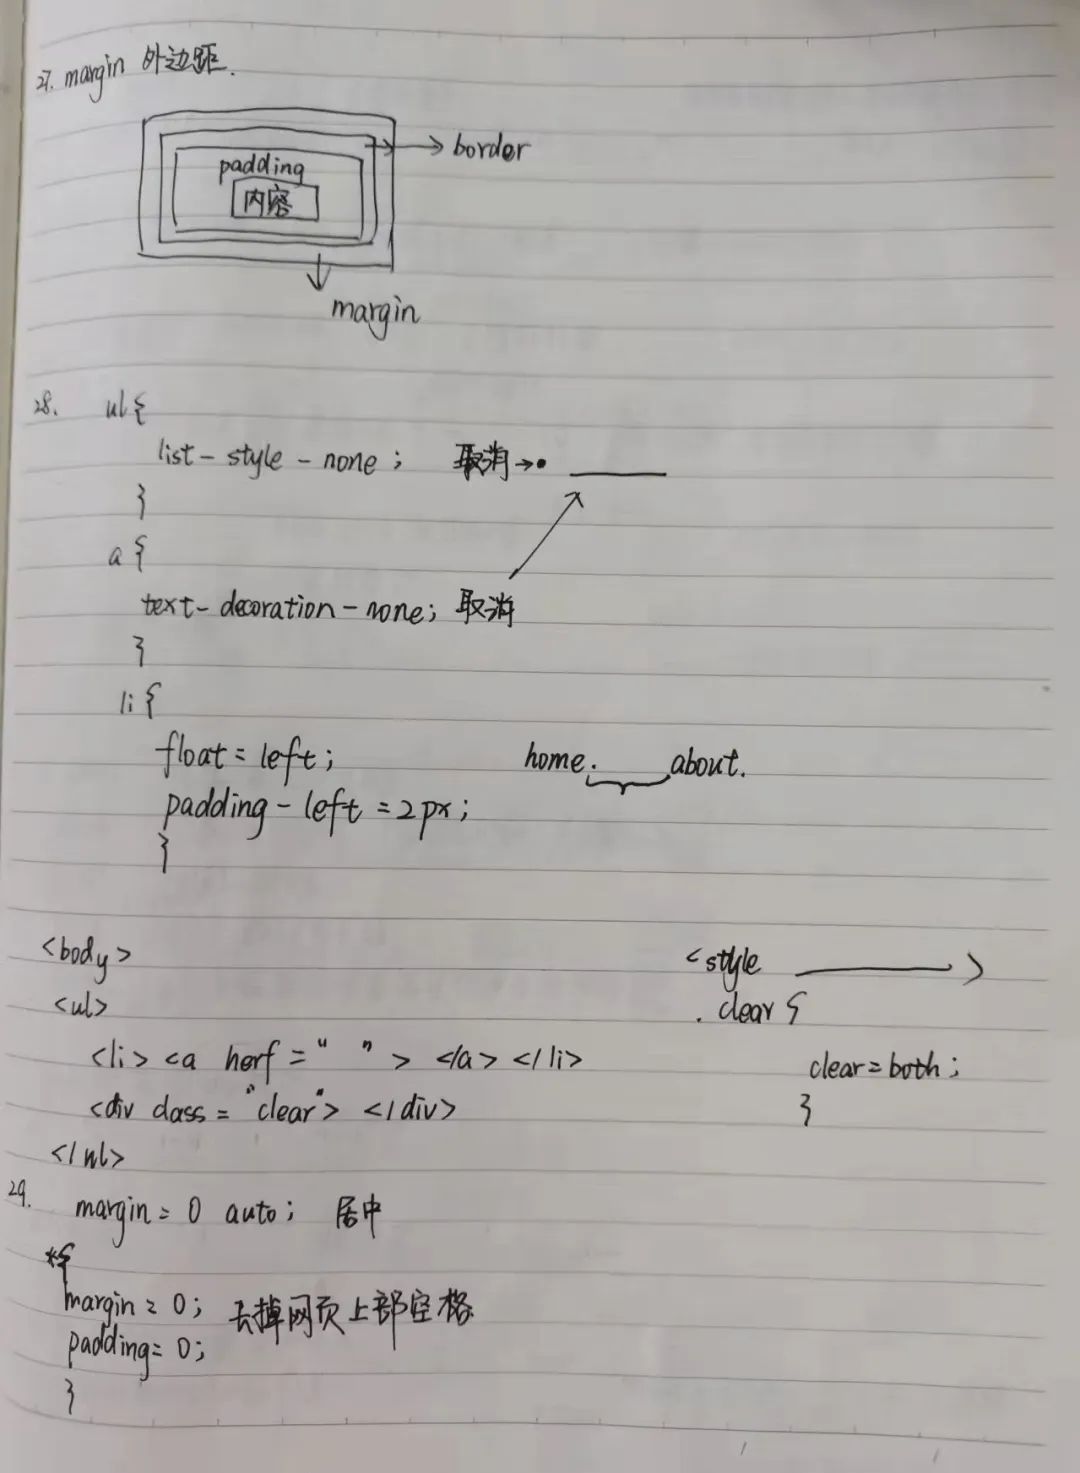 27. margin 外边距.
border
padding
内容
margin
28. ul{
list-style-none; 取消→•
}
a{
text-decoration-none; 取消
}
li{
float=left; home. about.
padding-left=2px;
}
<body> <style >
<ul> .clear{
<li><a herf=" "> </a></li> clear=both;
<div class="clear"></div> }
</ul>
29. margin=0 auto; 居中
*{
margin=0; 去掉网页上部空格
padding=0;
}